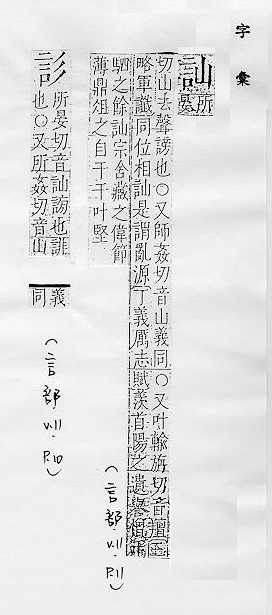 字彙
訕
所晏
切山去聲謗也○又師姦切音山義同○又叶輸旃切音羶
略軍讖同位相訕是謂亂源丁義厲志賦羨首陽之遺譽
駟之餘訕宗舍藏之偉節
薄鼎俎之自干干叶堅
(言部.V.11 P.11)
所晏切音訕謗也誹
也○又所姦切音山
義
同
(言部 V.11 P.10)